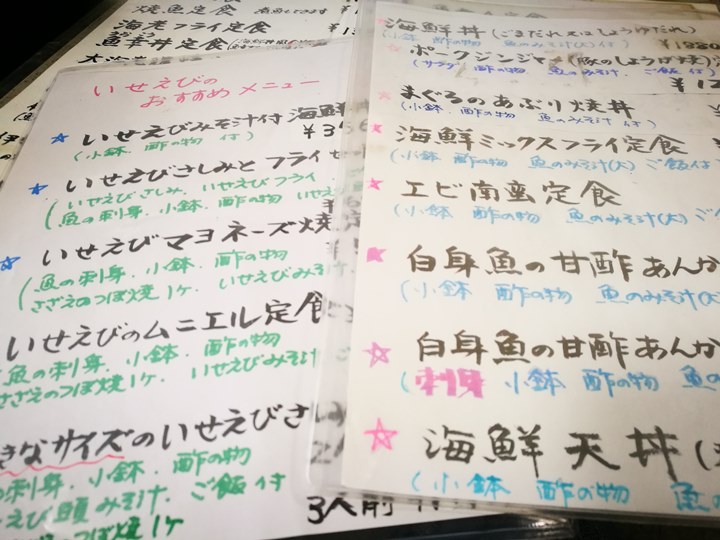 焼魚定食
海老フライ定食
魚幸丼定食
いせえびの
おすすめ メニュー
いせえびみそ汁付 海鮮
(小鉢 酢の物 付)
いせえびさしみと フライ
(いせえびさしみ. いせえびフライ
魚の刺身. 小鉢. 酢の物
いせえびマヨネーズ焼
(魚の刺身. 小鉢. 酢の物
さざえのつぼ焼1ヶ. いせえびみそ汁
いせえびのムニエル定食
魚の刺身. 小鉢. 酢の物
さざえのつぼ焼1ヶ. いせえびみそ汁
きなサイズのいせえびさ
の刺身. 小鉢. 酢の物
えび頭みそ汁. ご飯 付
つぼ焼1ヶ
3人前
海鮮丼 (ごまだれ又はしょうゆだれ)
(小鉢 酢の物 魚のみそ汁(大)付)
ポークジンジャー (豚のしょうが焼)
(サラダ 酢の物 魚のみそ汁 ご飯 付)
まぐろのあぶり焼丼
(小鉢 酢の物 魚のみそ汁 付)
海鮮ミックスフライ定食
(小鉢 酢の物 魚のみそ汁(大) ご飯付
エビ南蛮定食
(小鉢 酢の物 魚のみそ汁(大) ご
白身魚の甘酢あんか
(小鉢 酢の物 魚のみそ汁(大
白身魚の甘酢あんか
(刺身 小鉢 酢の物 魚の
海鮮天丼
(小鉢 酢の物 魚の